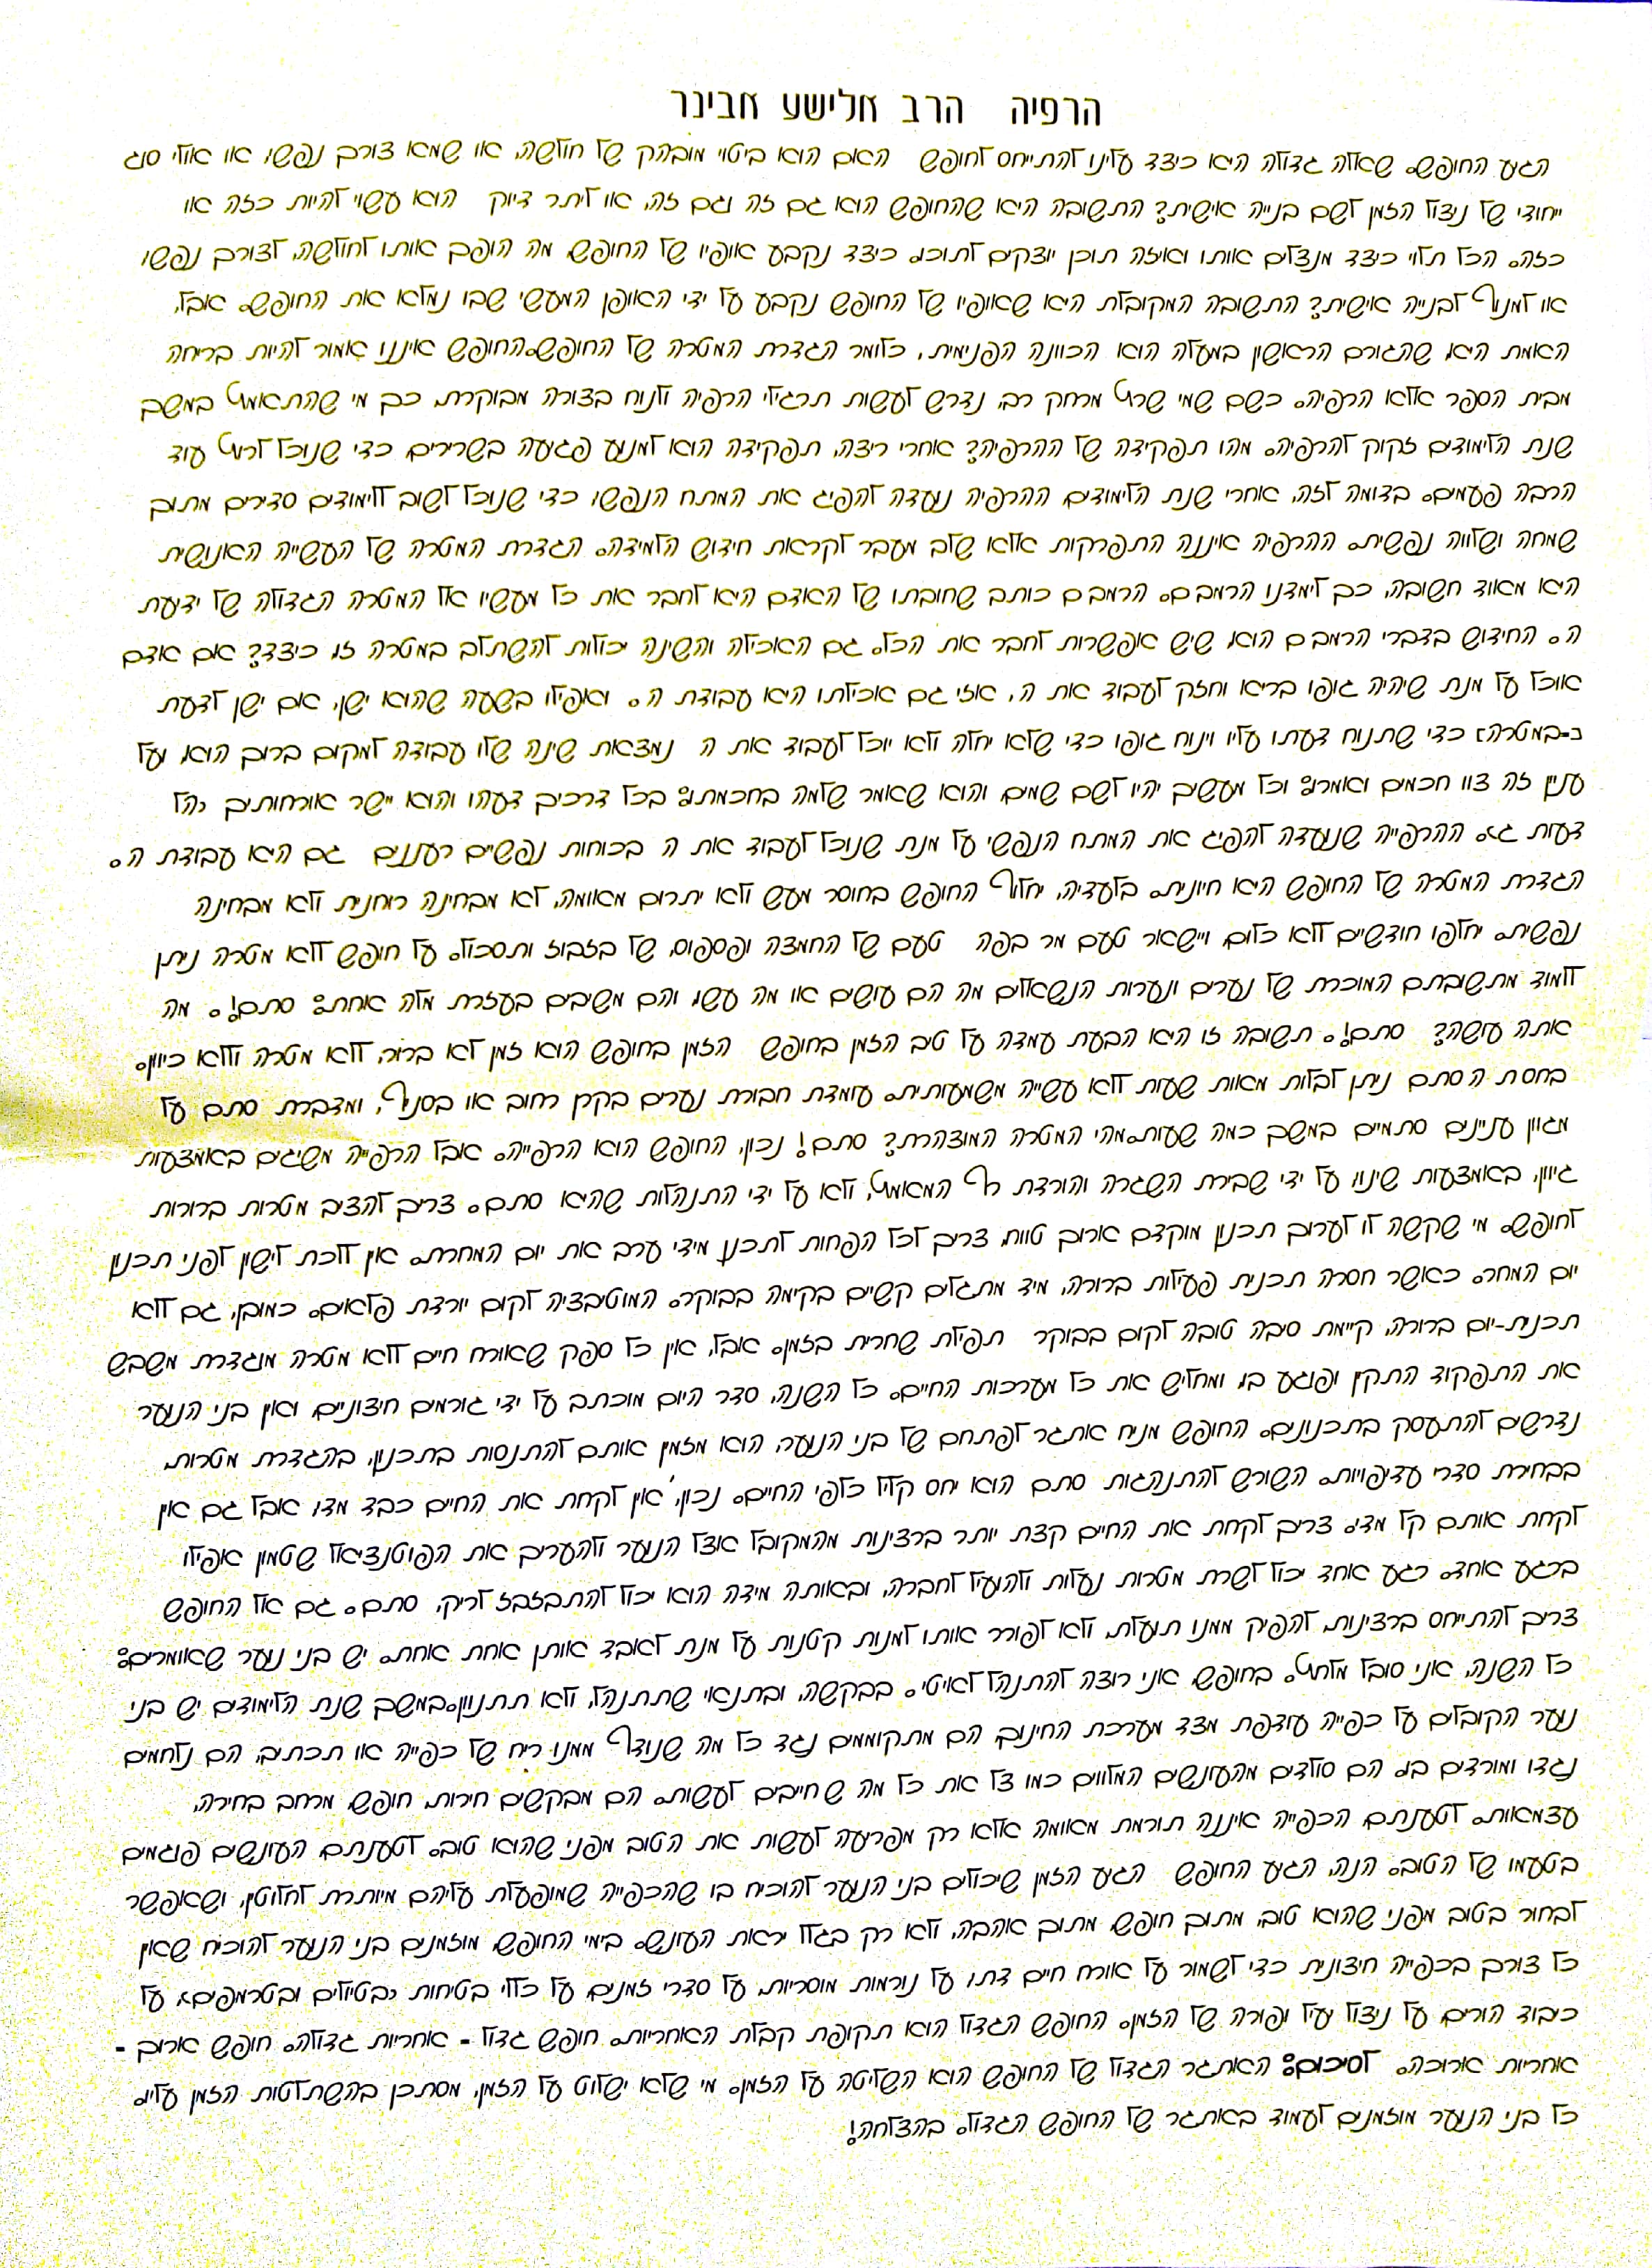 הרפיה הרב אלישע אבינר
הגיע החופש. שאלה גדולה היא כיצד עלינו להתייחס לחופש האם הוא ביטוי מובהק של חולשה, או שמא צורך נפשי, או אולי סוג
ייחודי של ניצול הזמן לשם בנייה אישית? התשובה היא שהחופש הוא גם זה וגם זה, או ליתר דיוק הוא עשוי להיות כזה או
כזה. הכל תלוי כיצד מנצלים אותו ואיזה תוכן יוצקים לתוכו. כיצד נקבע אופיו של החופש, מה הופך אותו לחולשה, לצורך נפשי
או למנוף לבנייה אישית? התשובה המקובלת היא שאופיו של החופש נקבע על ידי האופן המעשי שבו נמלא את החופש. אבל,
האמת היא, שהגורם הראשון במעלה הוא הכוונה הפנימית, כלומר הגדרת המטרה של החופש.החופש איננו אמור להיות בריחה
מבית הספר אלא הרפיה. כשם שמי שרץ מרחק רב, נדרש לעשות תרגילי הרפיה ולנוח בצורה מבוקרת, כך מי שהתאמץ במשך
שנת הלימודים זקוק להרפיה. מהו תפקידה של ההרפיה? אחרי ריצה, תפקידה הוא למנוע פגיעה בשרירים כדי שנוכל לרוץ עוד
הרבה פעמים. בדומה לזה, אחרי שנת הלימודים, ההרפיה נועדה להפיג את המתח הנפשי, כדי שנוכל לשוב ללימודים סדירים מתוך
שמחה ושלווה נפשית. ההרפיה איננה התפרקות אלא שלב מעבר לקראת חידוש הלמידה. הגדרת המטרה של העשייה האנושית
היא מאוד חשובה, כך לימדנו הרמבם. הרמבם כותב שחובתו של האדם היא לחבר את כל מעשיו אל המטרה הגדולה של ידיעת
ה. החידוש בדברי הרמבם הוא, שיש אפשרות לחבר את הכל, גם האכילה והשינה יכולות להשתלב במטרה זו. כיצד? אם אדם
אוכל על מנת שיהיה גופו בריא וחזק לעבוד את ה, אזי גם אכילתו היא עבודת ה. ואפילו בשעה שהוא ישן, אם ישן לדעת
כ-במטרה] כדי שתנוח דעתו עליו וינוח גופו כדי שלא יחלה ולא יוכל לעבוד את ה נמצאת שינה שלו עבודה למקום ברוך הוא, ועל
עניין זה צוו חכמים ואמרו: וכל מעשיך יהיו לשם שמים, והוא שאמר שלמה בחכמתו: בכל דרכיך דעהו והוא יישר אורחותיך כהל
דעות ג>. ההרפייה שנועדה להפיג את המתח הנפשי על מנת שנוכל לעבוד את ה בכוחות נפשיים רעננים גם היא עבודת ה.
הגדרת המטרה של החופש היא חיונית. בלעדיה, יחלוף החופש בחוסר מעש ולא יתרום מאומה, לא מבחינה רוחנית ולא מבחינה
נפשית. יחלפו חודשיים ללא כלום, ויישאר טעם מר בפה טעם של החמצה ופספוס, של בזבוז ותסכול. על חופש ללא מטרה ניתן
ללמוד מתשובתם המוכרת של נערים ונערות הנשאלים מה הם עושים או מה עשו, והם משיבים בעזרת מלה אחת: סתם!. מה
אתה עושה? סתם!. תשובה זו היא הבעת עמדה על טיב הזמן בחופש הזמן בחופש הוא זמן לא ברור, ללא מטרה וללא כיוון.
בחסת הסתם ניתן לבלות מאות שעות ללא עשייה משמעותית. עומדת חבורת נערים בקרן רחוב או בסניף, ומדברת סתם על
מגוון עניינים סתמיים במשך כמה שעות.מהי המטרה המוצהרת? סתם! נכון, החופש הוא הרפייה. אבל הרפייה משיגים באמצעות
גיוון, באמצעות שינוי, על ידי שבירת השגרה והורדת רף המאמץ, ולא על ידי התנהלות שהיא סתם. צריך להציב מטרות ברורות
לחופש. מי שקשה לו לערוך תכנון מוקדם ארוך טווח, צריך לכל הפחות לתכנן מידי ערב את יום המחרת. אין ללכת לישון לפני תכנון
יום המחר. כאשר חסרה תכנית פעילות ברורה, מיד מתגלים קשיים בקימה בבוקר. המוטיבציה לקום יורדת פלאים. כמובן, גם ללא
תכנית-יום ברורה, קיימת סיבה טובה לקום בבוקר תפילת שחרית בזמן. אבל, אין כל ספק שאורח חיים ללא מטרה מוגדרת משבש
את התפקוד התקין ופוגע בו, ומחליש את כל מערכות החיים. כל השנה, סדר היום מוכתב על ידי גורמים חיצוניים, ואין בני הנוער
נדרשים להתעסק בתכנונים. החופש מניח אתגר לפתחם של בני הנוער, הוא מזמין אותם להתנסות בתכנון, בהגדרת מטרות,
בבחירת סדרי עדיפויות. השורש להתנהגות סתם הוא יחס קליל כלפי החיים. נכון, אין לקחת את החיים כבד מדי, אבל גם אין
לקחת אותם קל מדי. צריך לקחת את החיים קצת יותר ברצינות מהמקובל אצל הנוער ולהעריך את הפוטנציאל שטמון אפילו
ברגע אחד. רגע אחד יכול לשרת מטרות נעלות ולהועיל לחברה, ובאותה מידה הוא יכול להתבזבז לריק, סתם. גם אל החופש
צריך להתייחס ברצינות, להפיק ממנו תועלת, ולא לפורר אותו למנות קטנות על מנת לאבד אותן אחת אחת. יש בני נוער שאומרים:
כל השנה, אני סובל מלחץ. בחופש, אני רוצה להתנהל לאיטי. בבקשה, ובתנאי שתתנהל, ולא תתנוון.במשך שנת הלימודים יש בני
נוער הקובלים על כפייה עודפת מצד מערכת החינוך. הם מתקוממים נגד כל מה שנודף ממנו ריח של כפייה או תכתיב, הם נלחמים
נגדו ומורדים בו. הם סולדים מהעונשים המלווים כמו צל את כל מה שחייבים לעשות. הם מבקשים חירות, חופש, מרחב בחירה,
עצמאות. לטענתם הכפייה איננה תורמת מאומה אלא רק מפריעה לעשות את הטוב מפני שהוא טוב. לטענתם העונשים פוגמים
בטעמו של הטוב. הנה, הגיע החופש הגיע הזמן שיכולים בני הנוער להוכיח בו שהכפייה שמופעלת עליהם מיותרת לחלוטין, ושאפשר
לבחור בטוב מפני שהוא טוב, מתוך חופש, מתוך אהבה, ולא רק בגלל יראת העונש. בימי החופש, מוזמנים בני הנוער להוכיח שאין
כל צורך בכפייה חיצונית כדי לשמור על אורח חיים דתי, על נורמות מוסריות, על סדרי זמנים, על כללי בטיחות כבטיולים ובטרמפים>, על
כיבוד הורים, על ניצול יעיל ופורה של הזמן. החופש הגדול הוא תקופת קבלת האחריות. חופש גדול - אחריות גדולה. חופש ארוך -
אחריות ארוכה. לסיכום: האתגר הגדול של החופש הוא השליטה על הזמן. מי שלא ישלוט על הזמן, מסתכן בהשתלטות הזמן עליו.
כל בני הנוער מוזמנים לעמוד באתגר של החופש הגדול. בהצלחה!